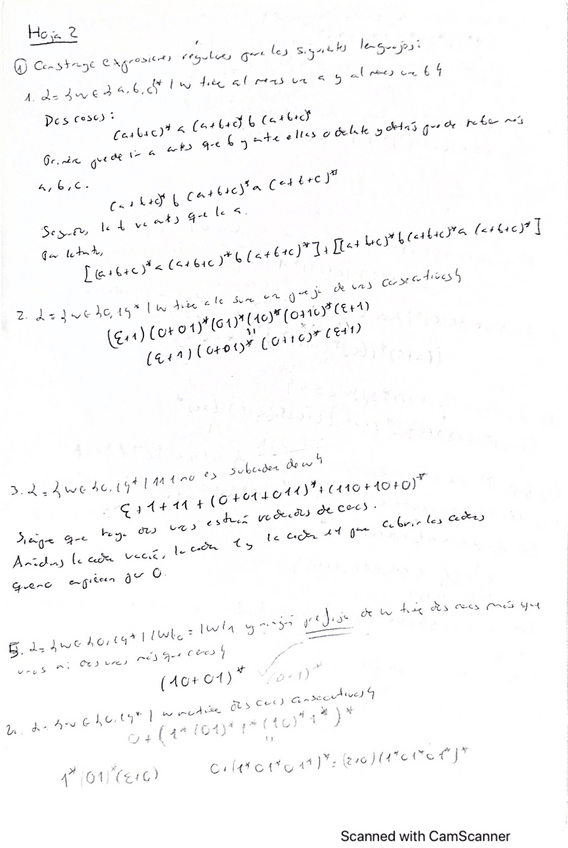 Hoja 2
① Construye expresiones regulares para los siguientes lenguajes:
1. L = { w ∈ {a, b, c}* | w tiene al menos un a y al menos un b }
Dos casos:
(a+b+c)* a (a+b+c)* b (a+b+c)*
puede ir a antes que b y entre ellas o delante y detrás puede haber más
a, b, c.
(a+b+c)* b (a+b+c)* a (a+b+c)*
la b va antes que la a.
Por tanto,
[(a+b+c)* a (a+b+c)* b (a+b+c)*] + [(a+b+c)* b (a+b+c)* a (a+b+c)*]
2. L = { w ∈ {0,1}* | w tiene a lo sumo una pareja de unos consecutivos }
(ε+1)(0+01)*(01)*(10)*(0+10)*(ε+1)
"
(ε+1)(0+01)*(0+10)*(ε+1)
3. L = { w ∈ {0,1}* | 111 no es subcadena de w }
ε+1+11+(0+01+011)*+(110+10+0)*
Siempre que haya dos unos estarán rodeados de ceros.
Añadimos la cadena vacía, la cadena 1 y la cadena 11 para cubrir las cadenas
que no empiezan por 0.
5. L = { w ∈ {0,1}* | |w|₀ = |w|₁ y ningún prefijo de w tiene dos ceros más que
unos ni dos unos más que ceros }
(10+01)*
(0+1)*
L = { w ∈ {0,1}* | w no tiene dos ceros consecutivos }
0+(1*(01)*1*(10)*1*)*
"
1*(01)*(ε+0)
0+(1*01*01*)* = (ε+0)(1*01*01*)*
Scanned with CamScanner